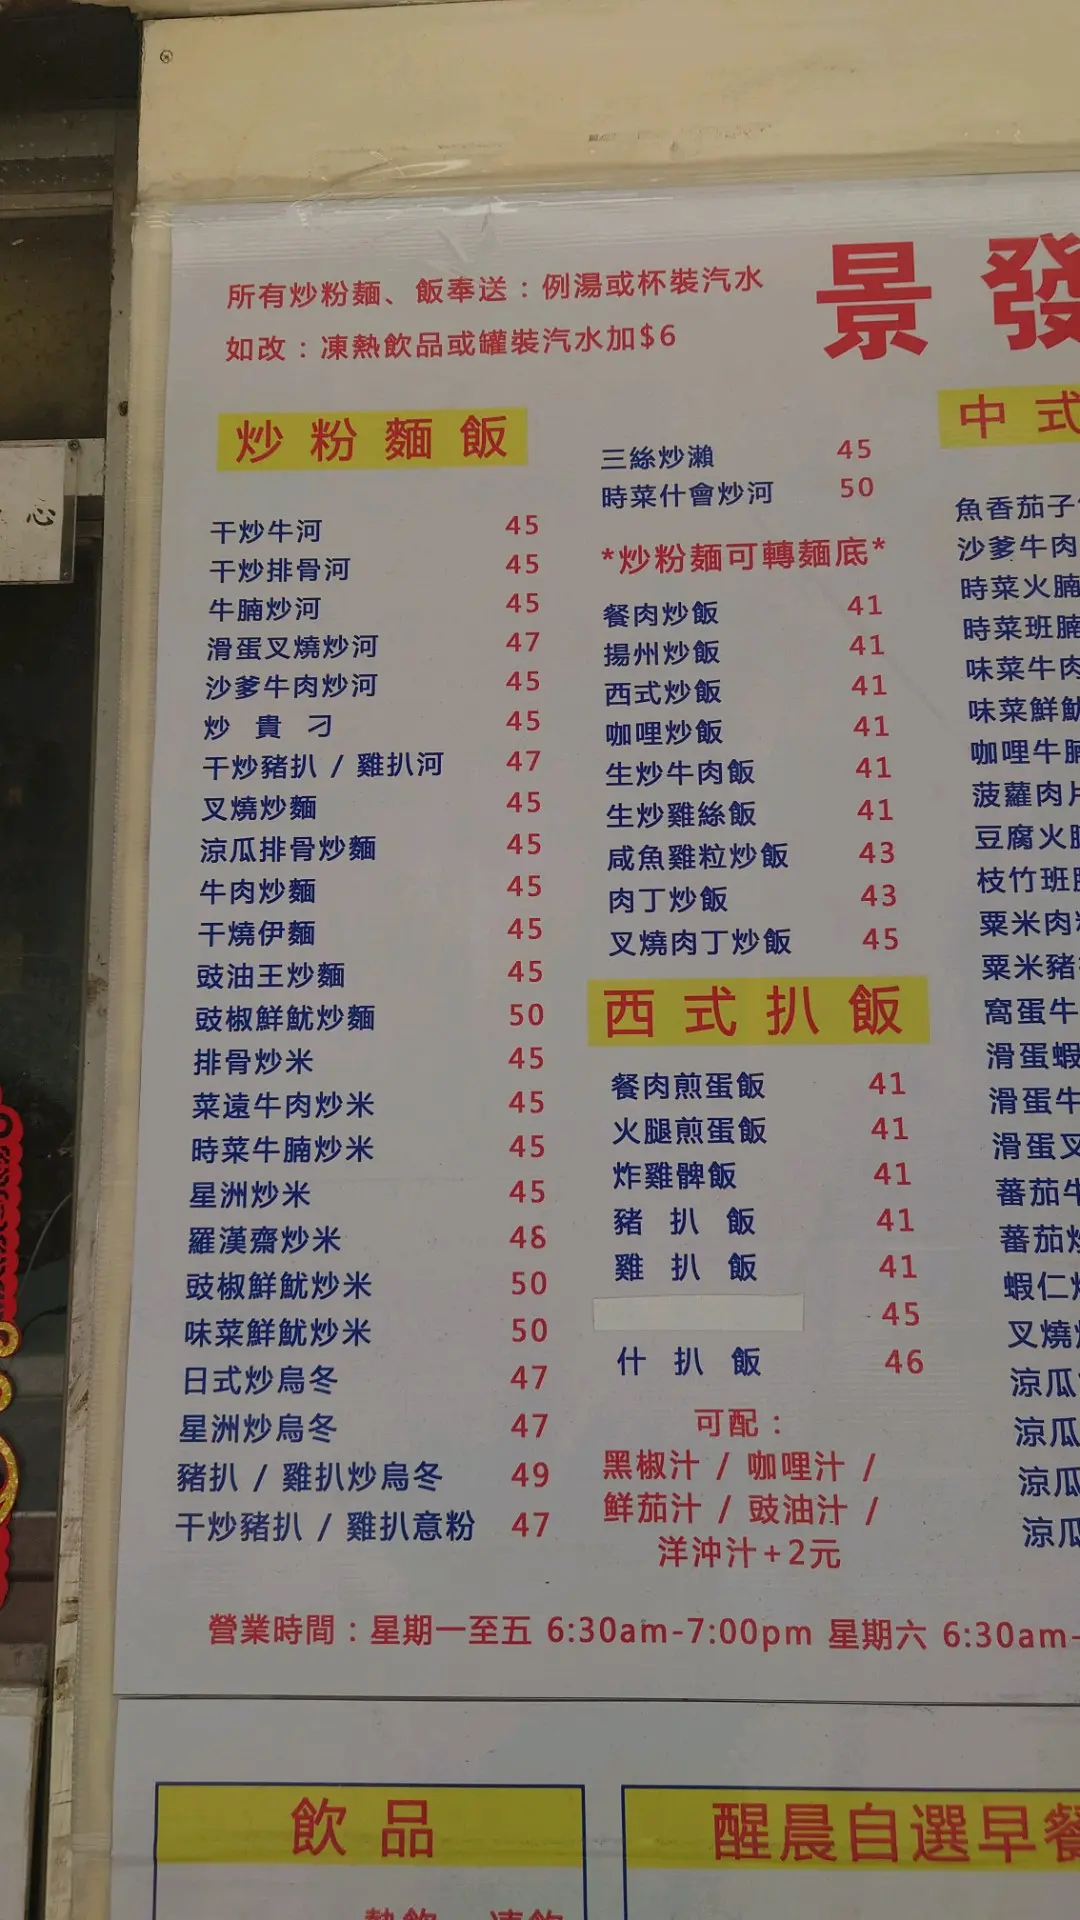 心
所有炒粉麵、飯奉送：例湯或杯裝汽水
如改：凍熱飲品或罐裝汽水加$6
景發
炒粉麵飯
干炒牛河 45
干炒排骨河 45
牛腩炒河 45
滑蛋叉燒炒河 47
沙爹牛肉炒河 45
炒貴刁 45
干炒豬扒 / 雞扒河 47
叉燒炒麵 45
涼瓜排骨炒麵 45
牛肉炒麵 45
干燒伊麵 45
豉油王炒麵 45
豉椒鮮魷炒麵 50
排骨炒米 45
菜遠牛肉炒米 45
時菜牛腩炒米 45
星洲炒米 45
羅漢齋炒米 48
豉椒鮮魷炒米 50
味菜鮮魷炒米 50
日式炒烏冬 47
星洲炒烏冬 47
豬扒 / 雞扒炒烏冬 49
干炒豬扒 / 雞扒意粉 47
三絲炒瀨 45
時菜什會炒河 50
*炒粉麵可轉麵底*
餐肉炒飯 41
揚州炒飯 41
西式炒飯 41
咖哩炒飯 41
生炒牛肉飯 41
生炒雞絲飯 41
咸魚雞粒炒飯 43
肉丁炒飯 43
叉燒肉丁炒飯 45
西式扒飯
餐肉煎蛋飯 41
火腿煎蛋飯 41
炸雞髀飯 41
豬扒飯 41
雞扒飯 41
45
什扒飯 46
可配：
黑椒汁 / 咖哩汁 /
鮮茄汁 / 豉油汁 /
洋沖汁+2元
中式
魚香茄子
沙爹牛肉
時菜火腩
時菜班腩
味菜牛肉
味菜鮮魷
咖哩牛腩
菠蘿肉片
豆腐火腩
枝竹班腩
粟米肉粒
粟米豬
窩蛋牛
滑蛋蝦
滑蛋牛
滑蛋叉
蕃茄牛
蕃茄炒
蝦仁炒
叉燒炒
涼瓜
涼瓜
涼瓜
涼瓜
營業時間：星期一至五 6:30am-7:00pm 星期六 6:30am-
飲品
熱飲 凍飲
醒晨自選早餐